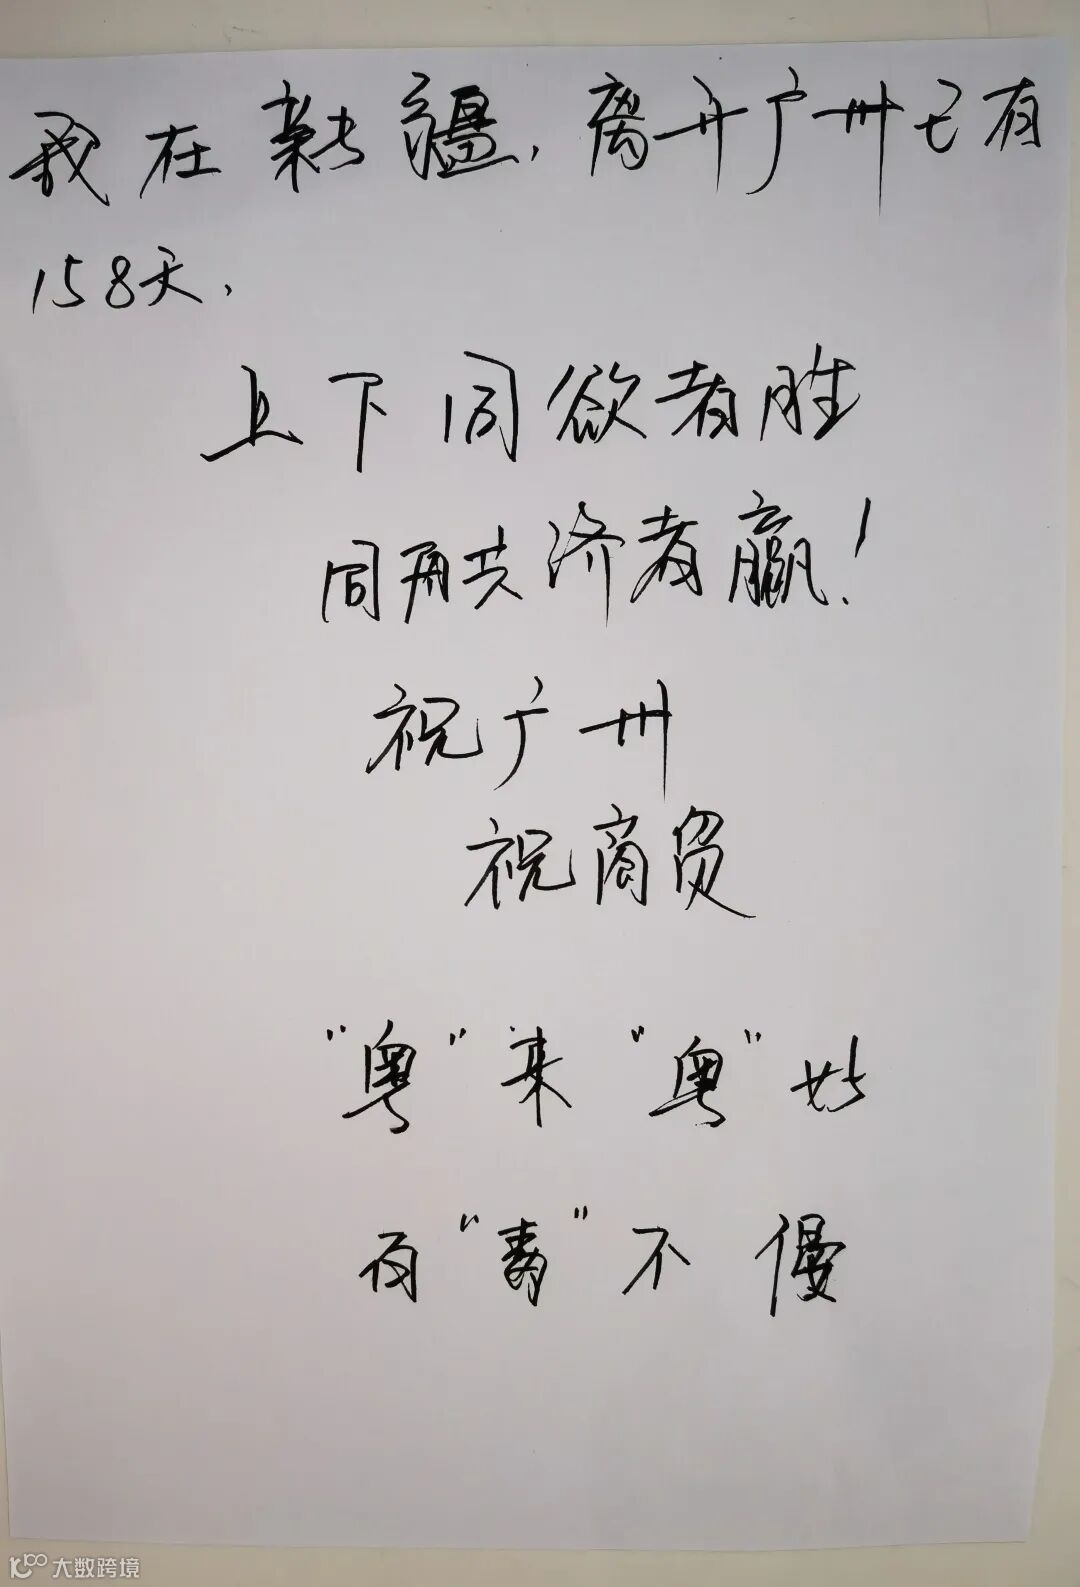 我在新疆,离开广州已有
158天,
上下同欲者胜
同舟共济者赢!
祝广州
祝商贸
"粤"来"粤"好
有"毒"不侵
大数跨境